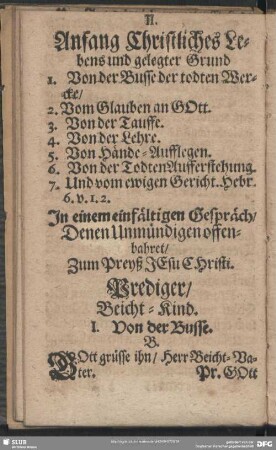 II.
Anfang Christliches Le-
bens und gelegter Grund
1. Von der Busse der todten Wer-
cke/
2. Vom Glauben an GOtt.
3. Von der Tauffe.
4. Von der Lehre.
5. Von Hände-Aufflegen.
6. Von der Todten Aufferstehung.
7. Und vom ewigen Gericht. Hebr.
6. v. 1. 2.
In einem einfältigen Gespräch/
Denen Unmündigen offen-
bahret/
Zum Preyß JEsu CHristi.
Prediger/
Beicht-Kind.
I. Von der Busse.
B.
GOtt grüsse ihn/ Herr Beicht-Va-
ter.
Pr. GOtt
SLUB
DFG